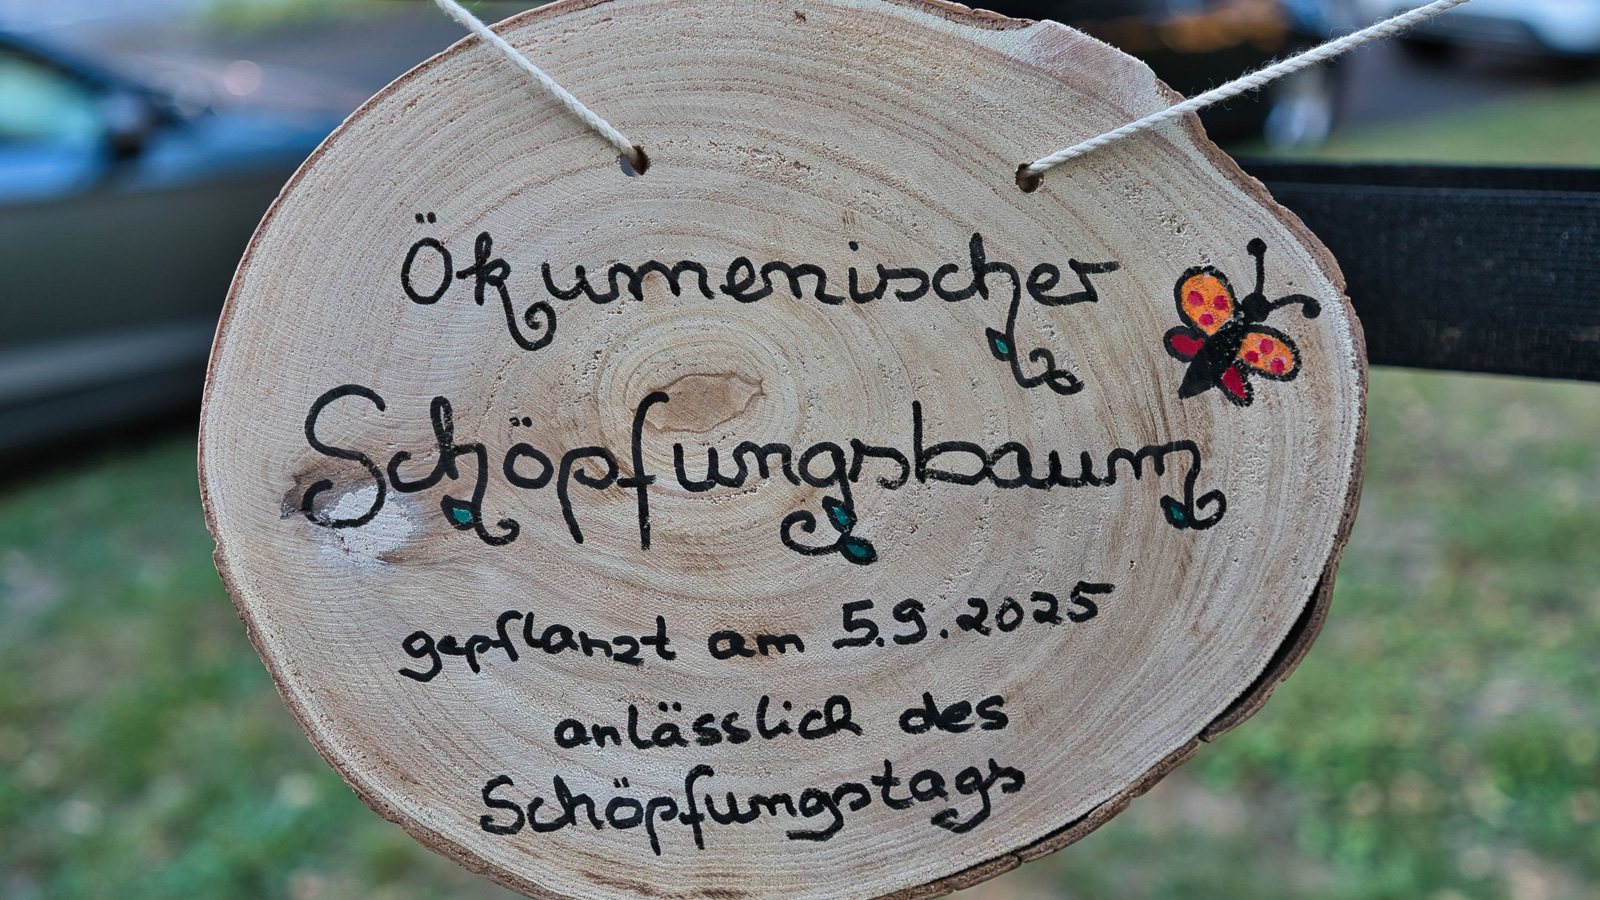 Ökumenischer
Schöpfungsbaum
gepflanzt am 5.9.2025
anlässlich des
Schöpfungstags